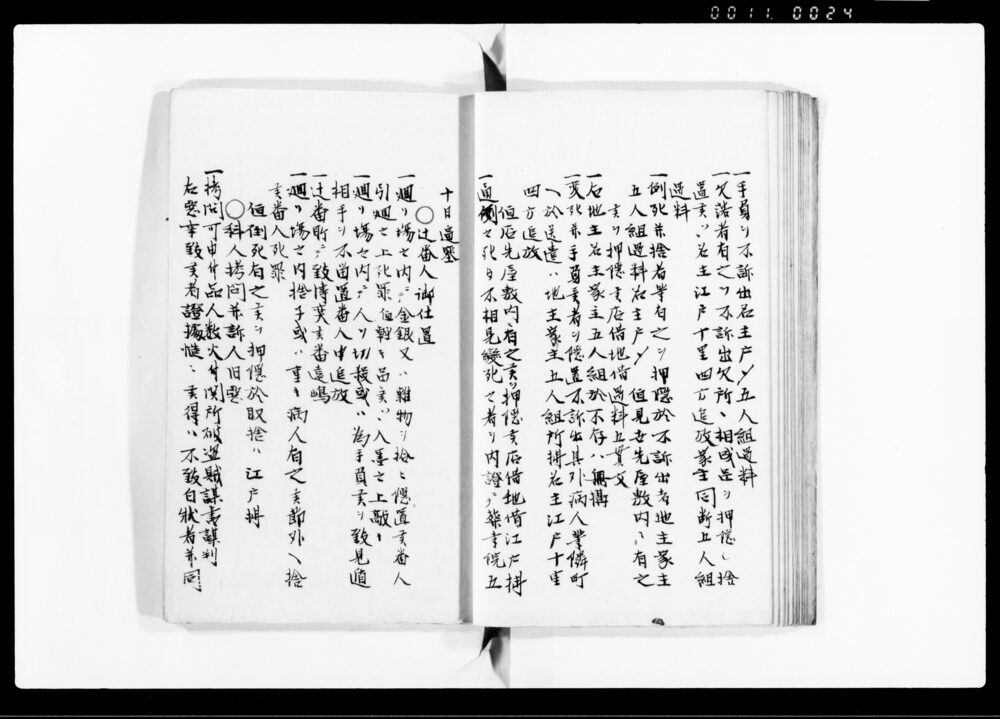 0011 0024
一手負ヲ不訴出名主戸〆五人組過料
一欠落者有之ヲ不訴出欠所ニ相成品ヲ押隠シ捨
置 ハ名主江戸十里四方追放家主同断五人組
過料
一倒死并捨者有之ヲ押隠於不訴出者地主家主
五人組過料名主戸〆 但見世先屋敷内ニ有之
ヲ押隠 店借地借過料五貫文
一右地主名主家主五人組於不存ハ無構
一変死并手負 者ヲ隠置不訴出其外病人等隣町
ヘ於送遣ハ地主家主五人組所構名主江戸十里
四方追放
但店先屋敷内ニ有之 ヲ押隠 店借地借江戸構
一過 之死ヲ不相見変死之者ヲ内證ニテ葬 院五
十日逼塞
○辻番人御仕置
一廻リ場之内ニテ金銀又ハ雑物ヲ拾ヒ隠置 番人
引廻之上死罪但軽キ品 ハ入墨之上敲
一廻リ場之内ニテ人ヲ切殺或ハ為手負 ヲ致見逃
相手ヲ不留置番人中追放
一辻番所ニテ致博奕 番遠嶋
一廻リ場之内捨子或ハ重キ病人有之 節外ヘ捨
番人死罪
但倒死有之 ヲ押隠於取捨ハ江戸構
○科人拷問并訴人旧悪
一拷問可申付品人殺火付関所破盗賊謀書謀判
右悪事致 者證拠慥ニ 得ハ不致白状者并同